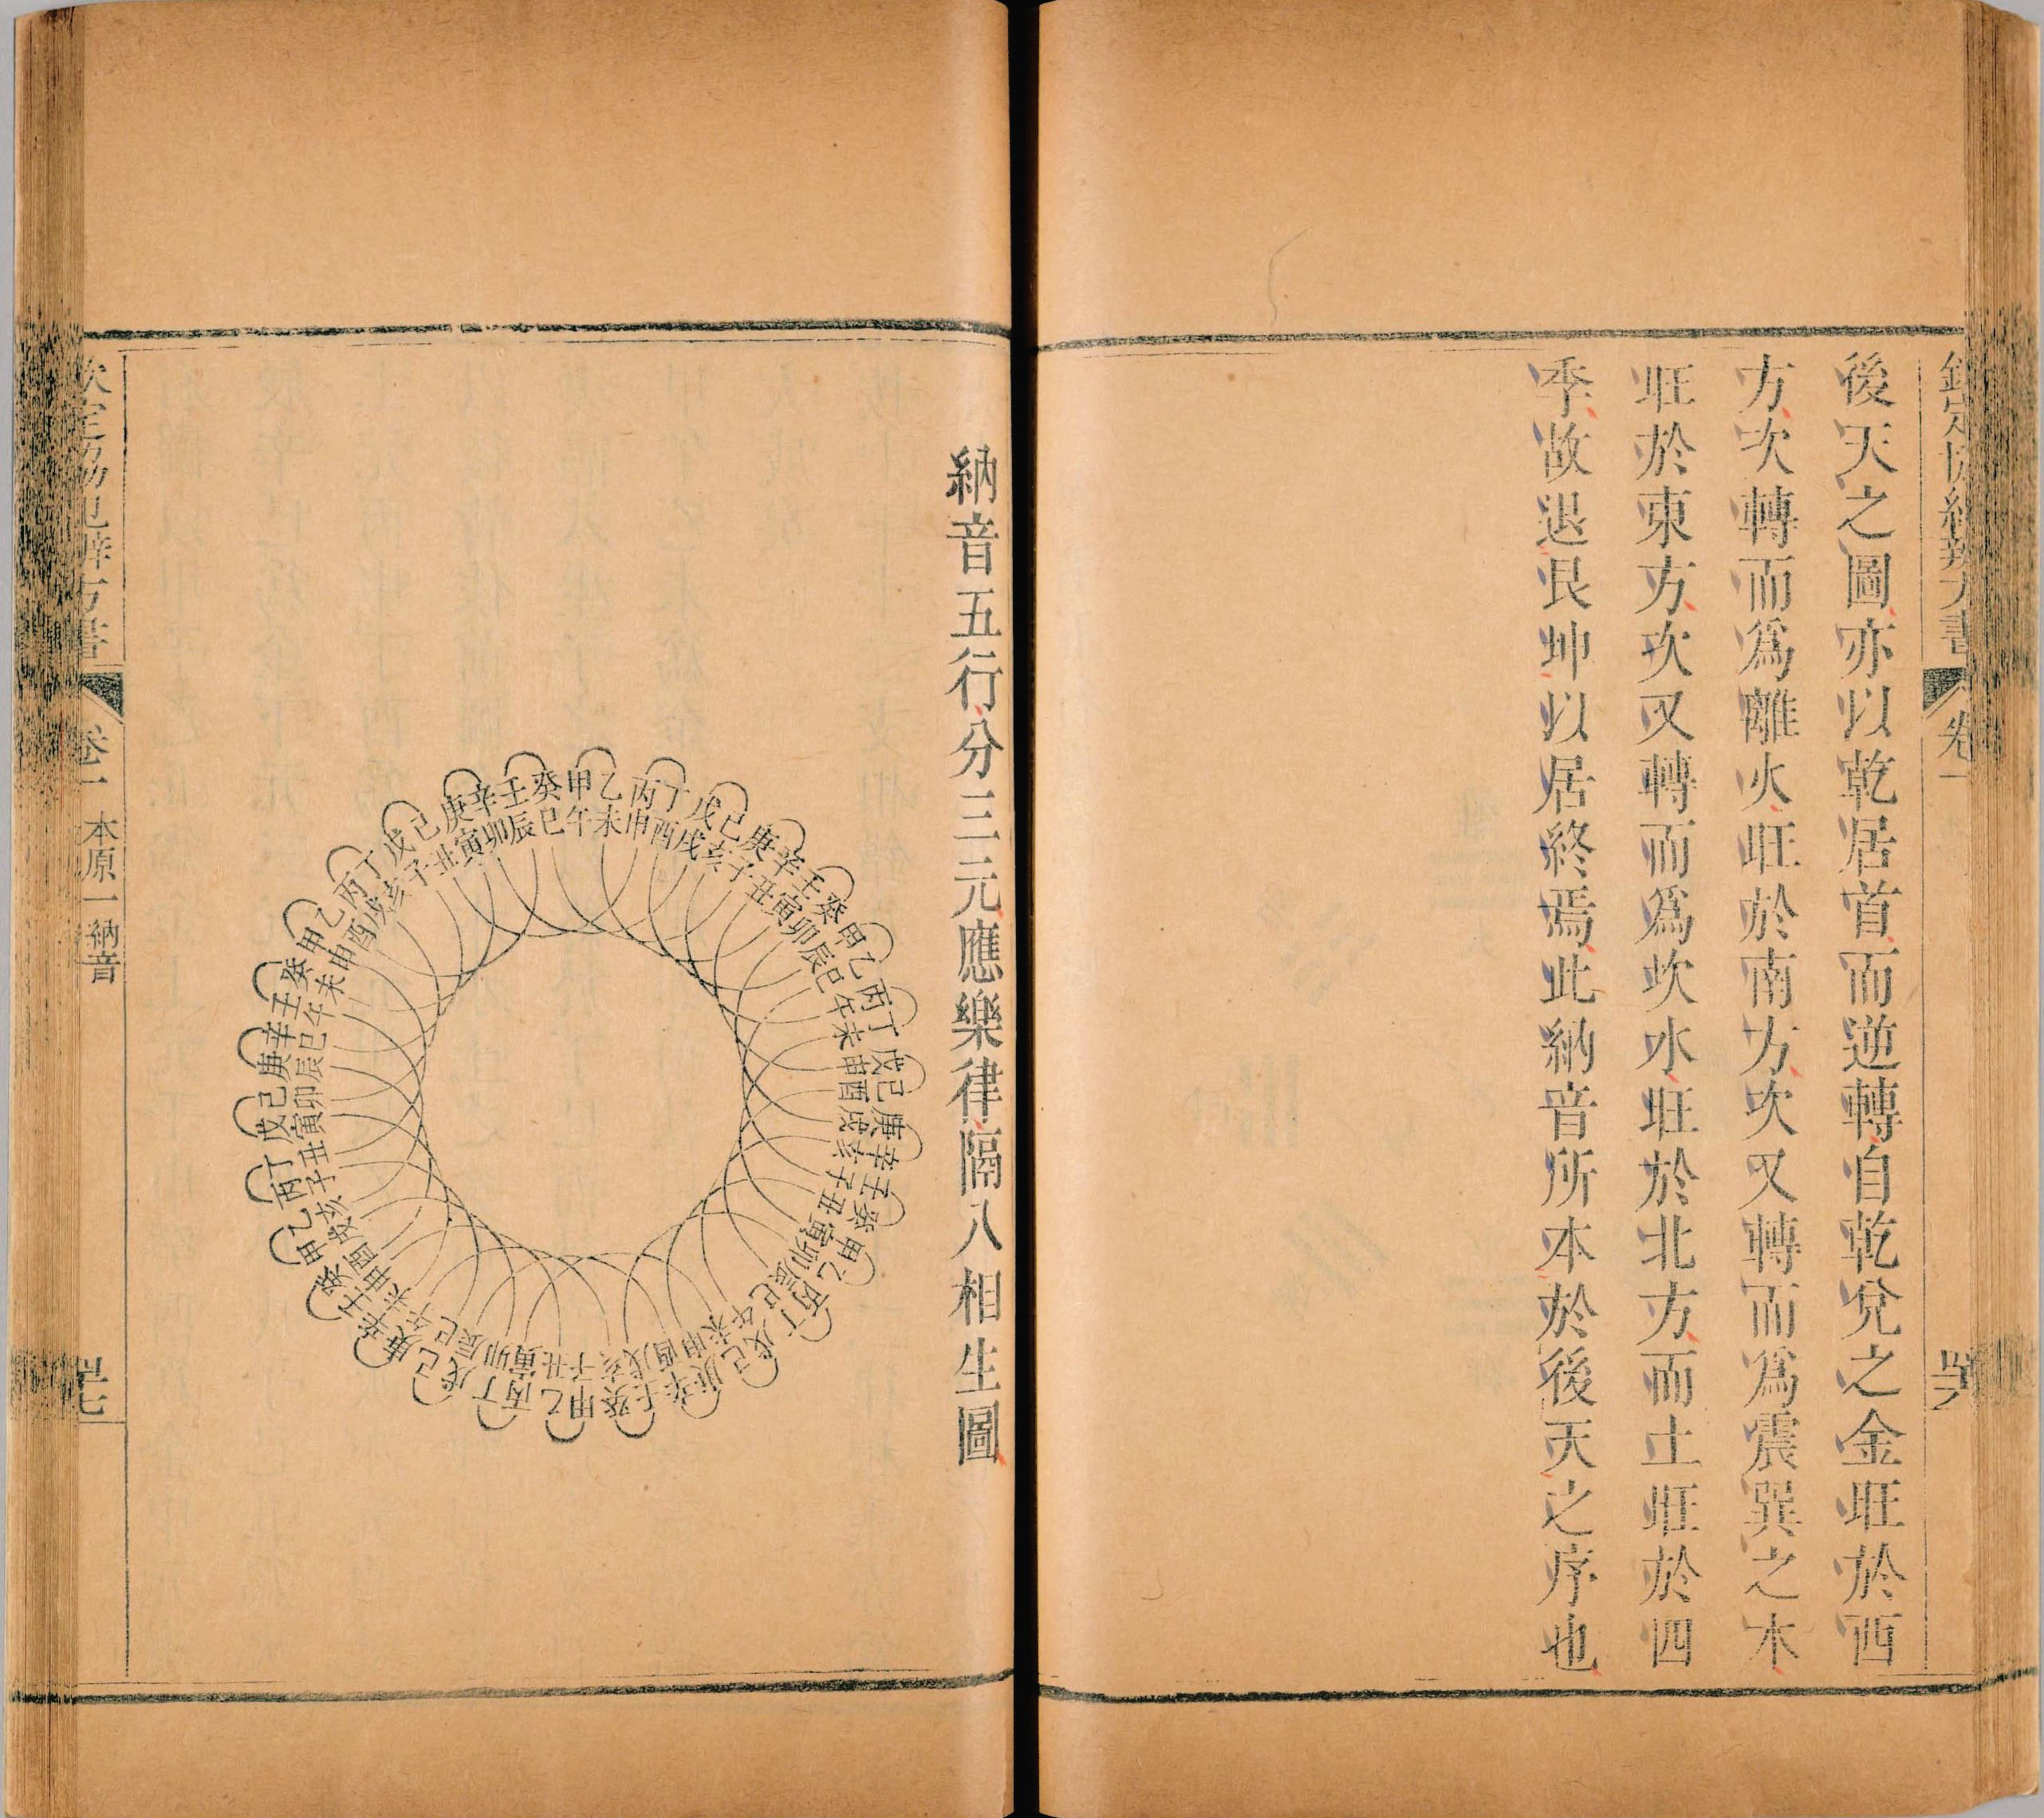 欽定協紀辨方書 卷一
後天之圖亦以乾居首而逆轉自乾兌之金旺於西
方次轉而爲離火旺於南方次又轉而爲震巽之木
旺於東方次又轉而爲坎水旺於北方而土旺於四
季故退艮坤以居終焉此納音所本於後天之序也
納音五行分三元應樂律隔八相生圖
甲子 乙丑 丙寅 丁卯 戊辰 己巳 庚午 辛未 壬申 癸酉
甲戌 乙亥 丙子 丁丑 戊寅 己卯 庚辰 辛巳 壬午 癸未
甲申 乙酉 丙戌 丁亥 戊子 己丑 庚寅 辛卯 壬辰 癸巳
甲午 乙未 丙申 丁酉 戊戌 己亥 庚子 辛丑 壬寅 癸卯
甲辰 乙巳 丙午 丁未 戊申 己酉 庚戌 辛亥 壬子 癸丑
甲寅 乙卯 丙辰 丁巳 戊午 己未 庚申 辛酉 壬戌 癸亥
欽定協紀辨方書 卷一 本原一納音